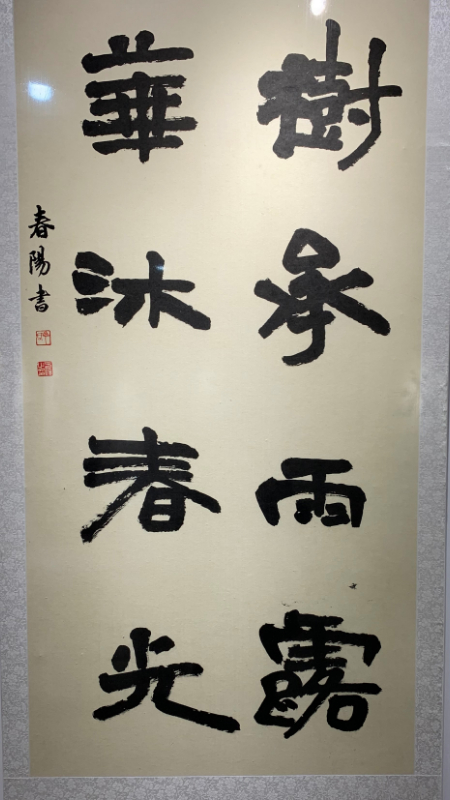 樹承雨露
華沐春光
春陽書